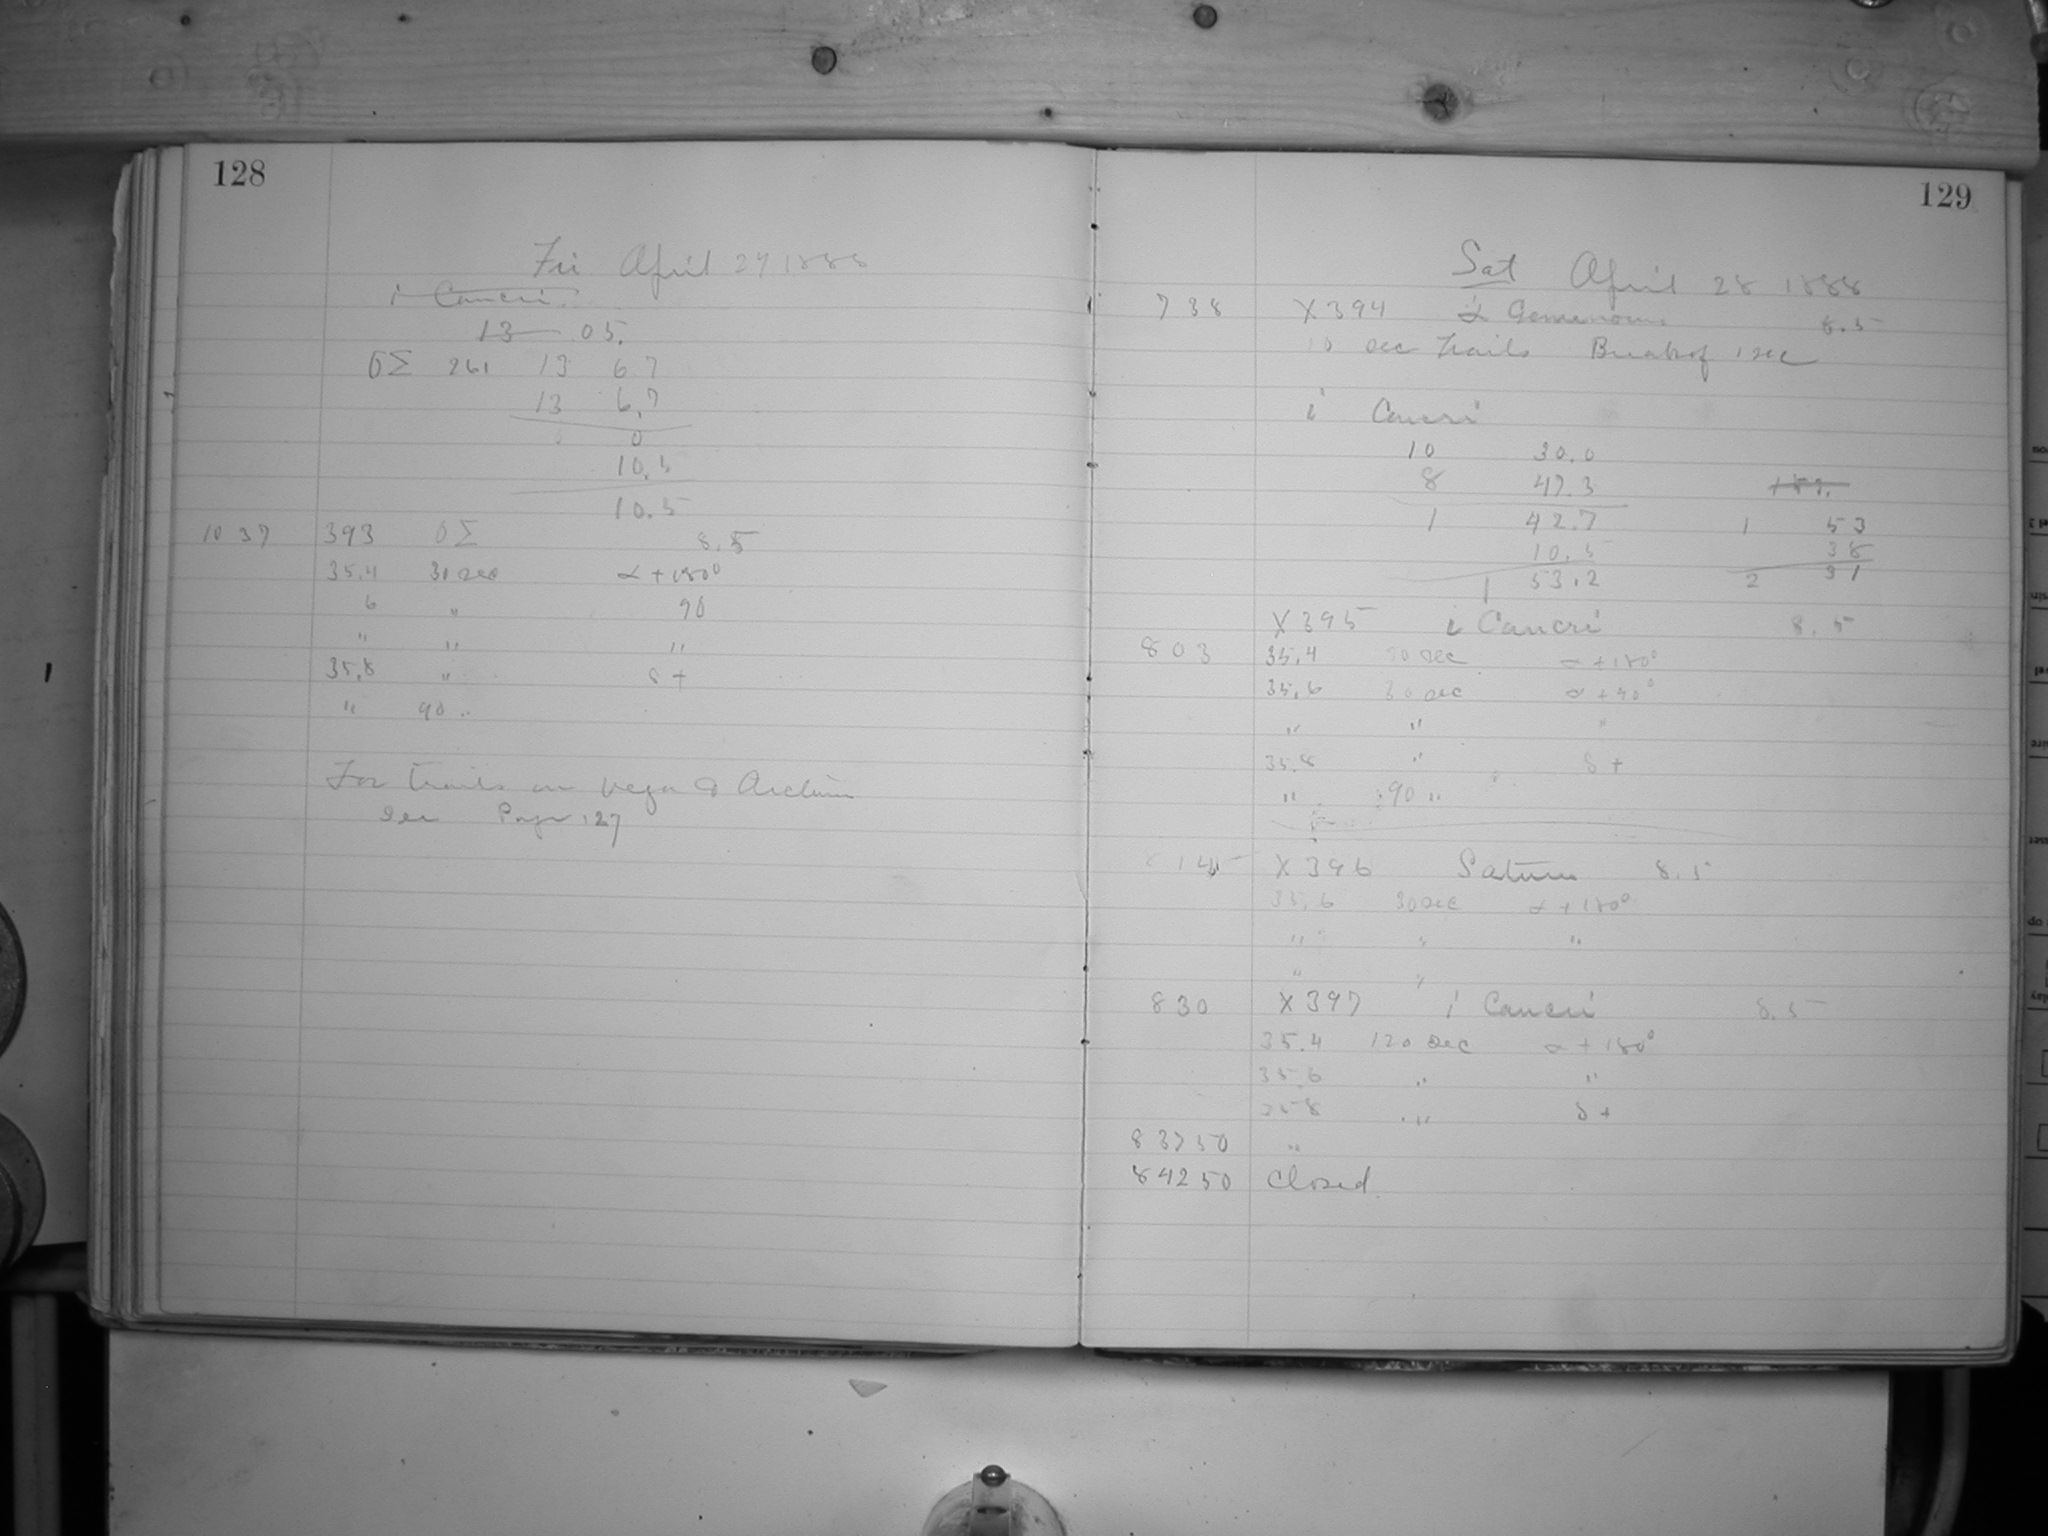 128
Fri April 27 1888
i Cancri
13 05.
OΣ 261 13 6.7
13 6.7
0 0
10.5
10.5
10 37 393 OΣ 8.5
35.4 30 sec α + 180°
6 " 90
" " "
35.8 " δ +
" 90 "
For trails on Vega & Arcturus
see Page 127
129
Sat April 28 1888
7 38 X 394 α Geminorum 8.5
10 sec trails Break of 1 sec
i Cancri
10 30.0
8 47.3
1 42.7 1 53
10.5 38
1 53.2 2 31
X 395 i Cancri 8.5
8 03 35.4 30 sec α + 180°
35.6 30 sec α + 90°
" " "
35.8 " δ +
" 90 "
8 14 X 396 Saturn 8.5
35.6 30 sec α + 180°
" " "
" "
8 30 X 397 i Cancri 8.5
35.4 120 sec α + 180°
35.6 " "
35 8 " δ +
8 37 50 "
8 42 50 Closed